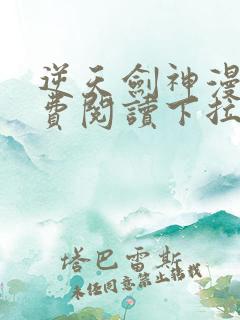 逆天劍神漫
費閱讀下拉
塔巴雷斯
未經同意禁止轉載